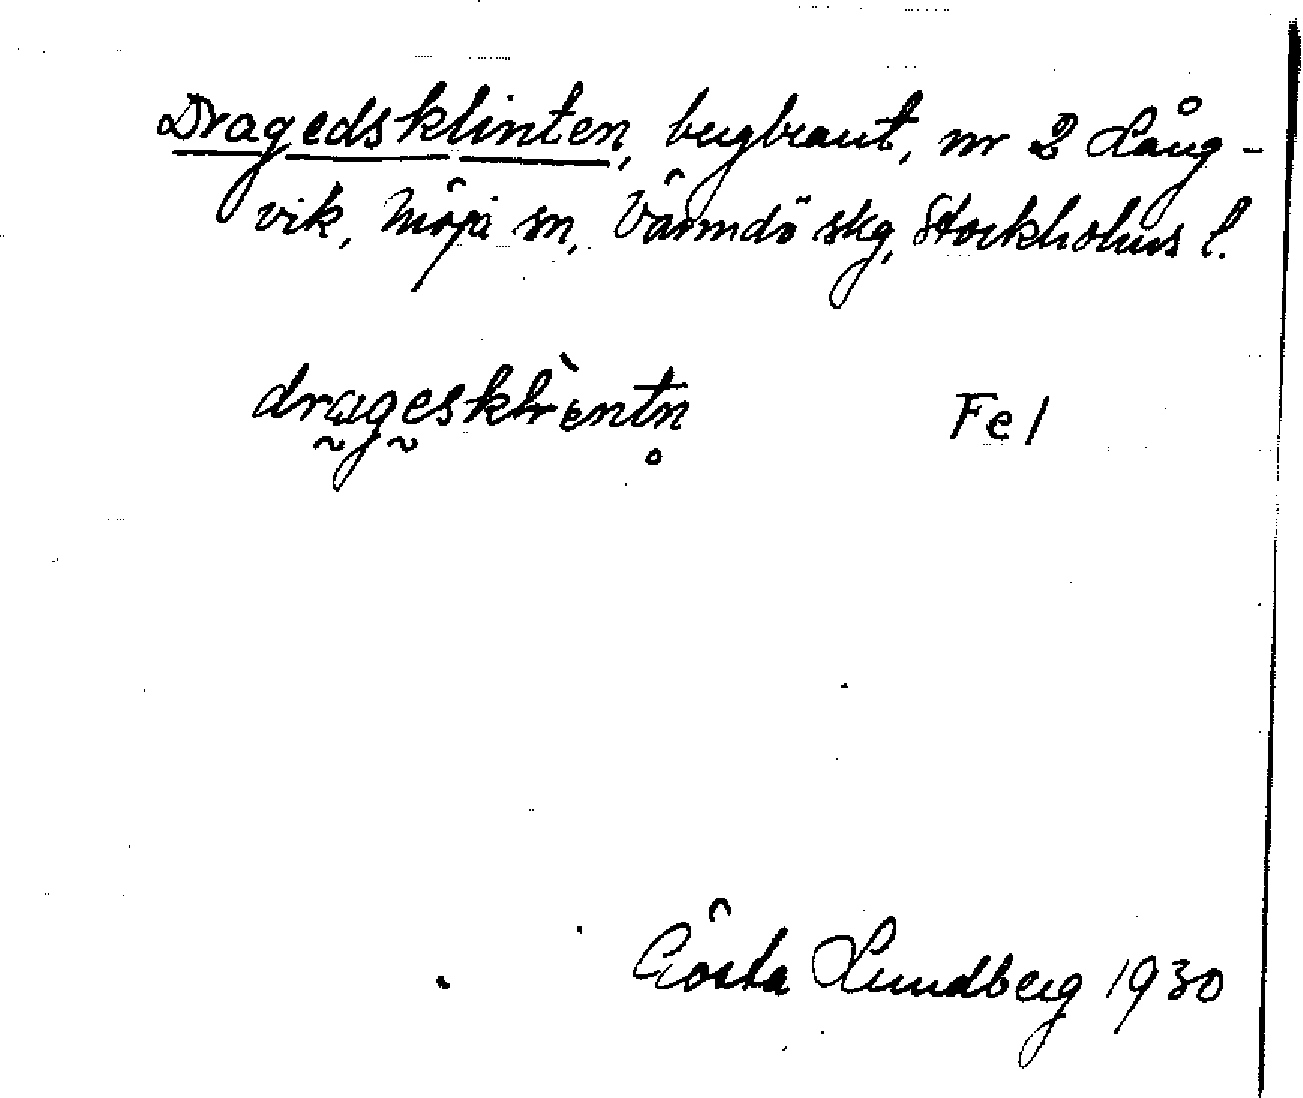 Dragedsklinten, bergbrant, nr 2 Lång-
vik, Möja sn, Värmdö skg, Stockholms l.
drageskl̀entn̥ Fe1
Gösta Lundberg 1930